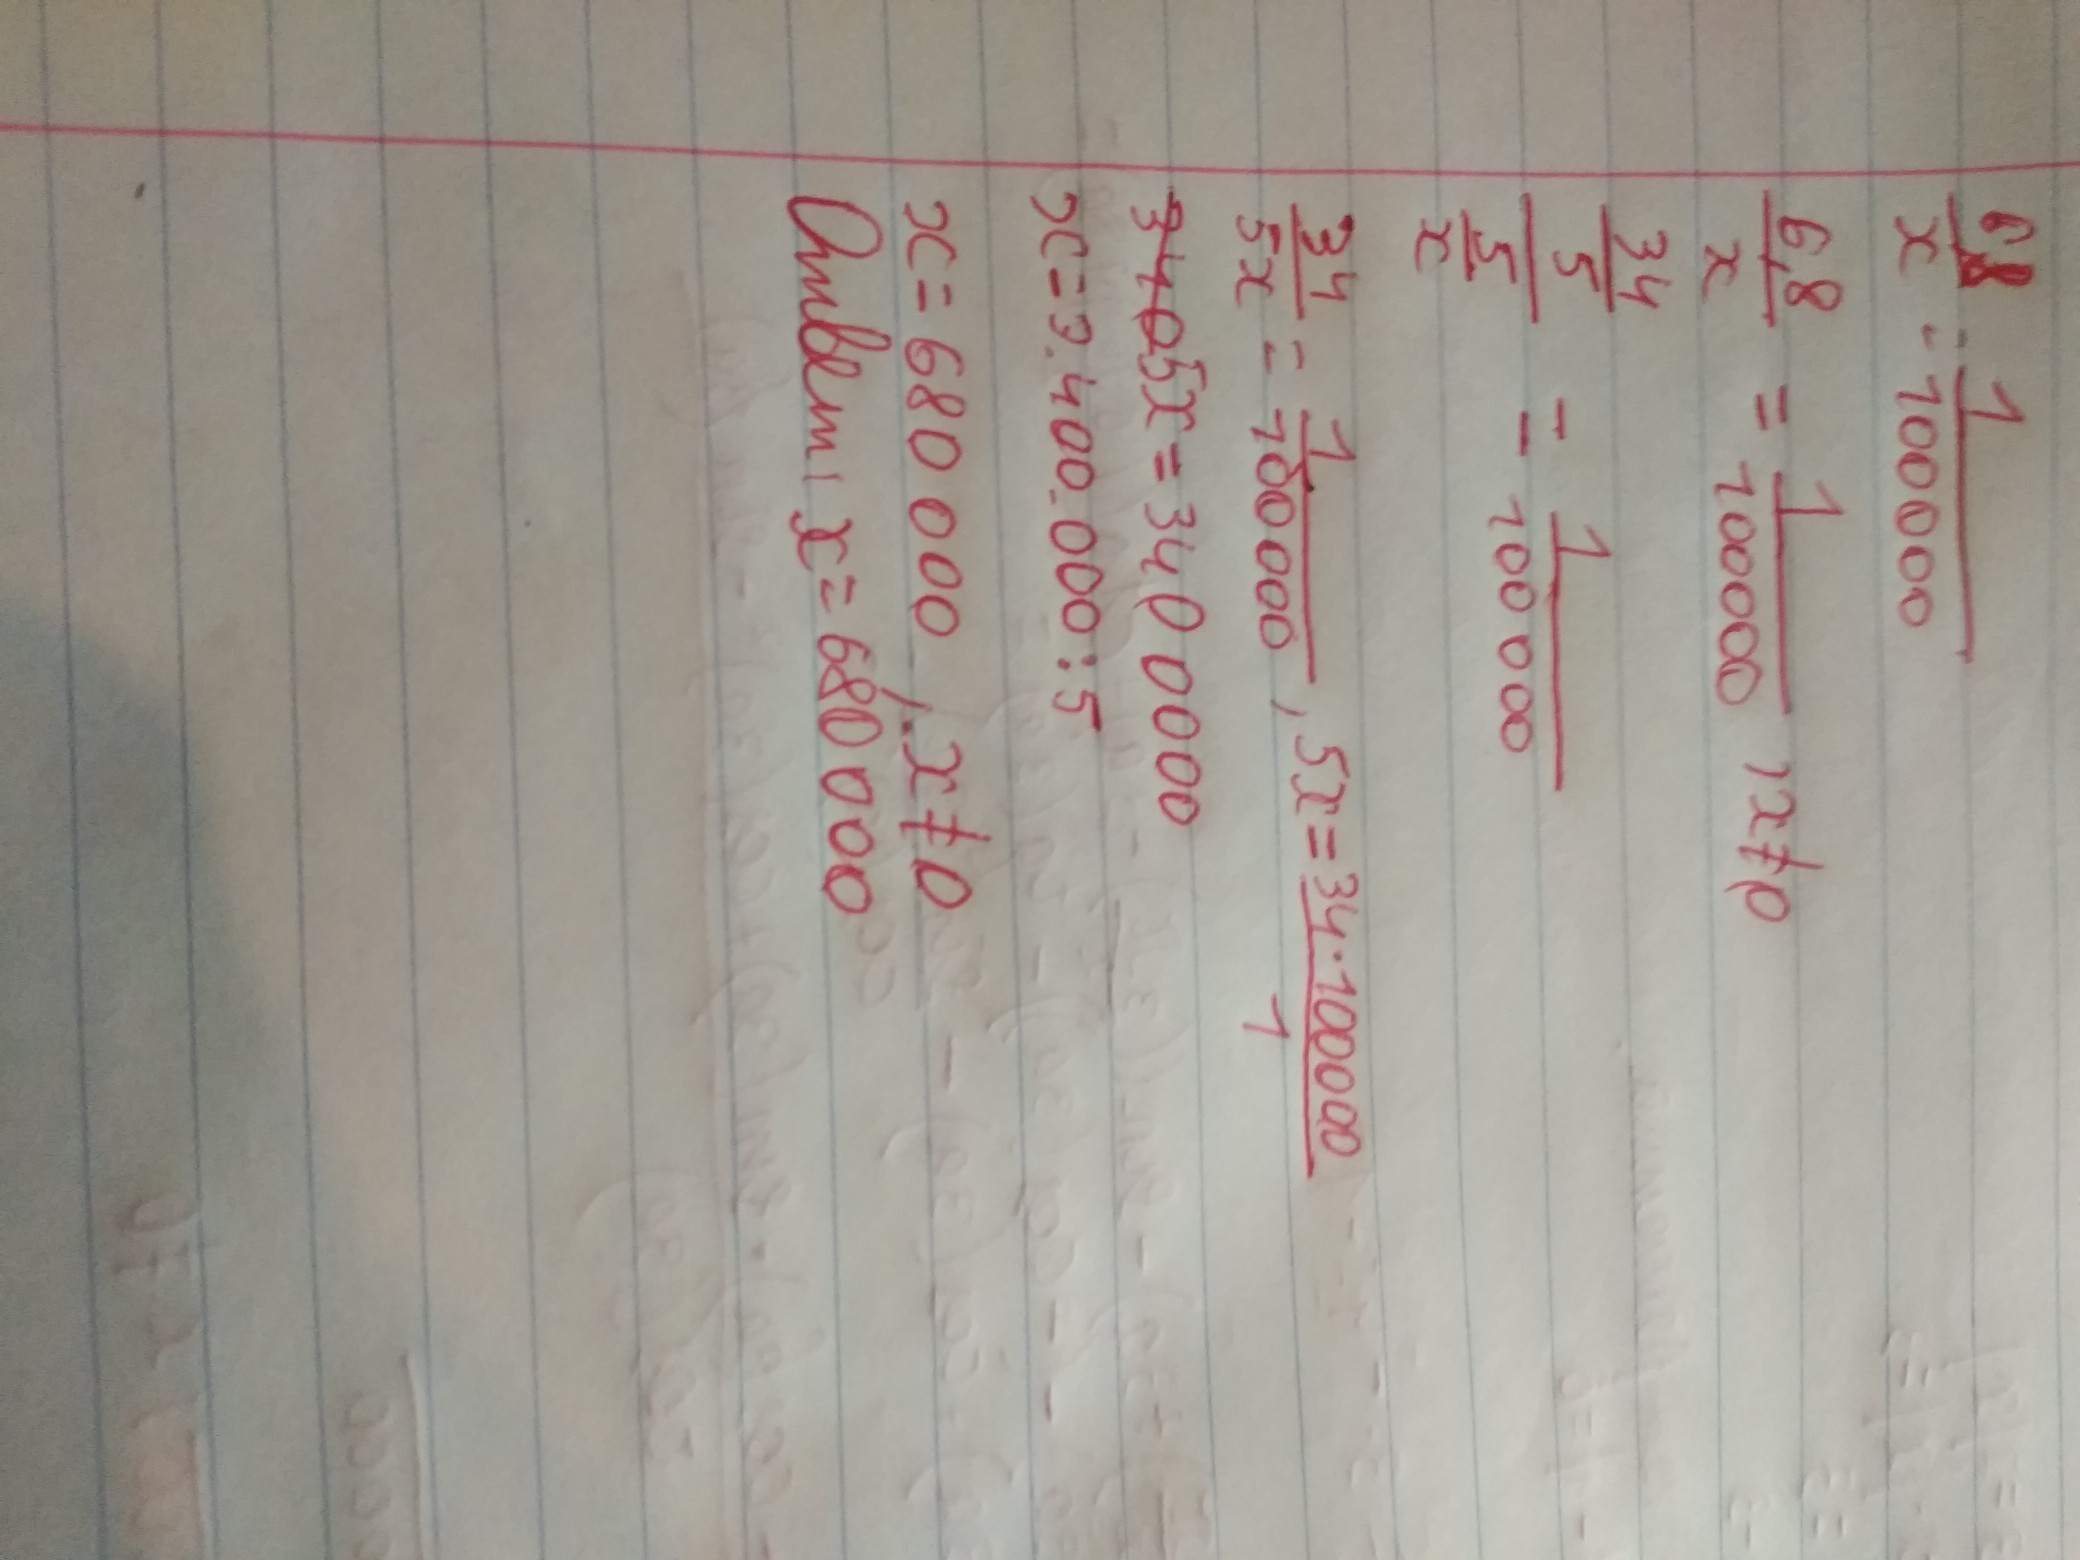 6,8/x = 1/100000
6,8/x = 1/100000, x≠0
34/5 / 5/x = 1/100 000
34/5x = 1/100000, 5x = 34·100000/1
5x = 340 0000
x = 3.400.000:5
x = 680 000, x≠0
x = 680 000